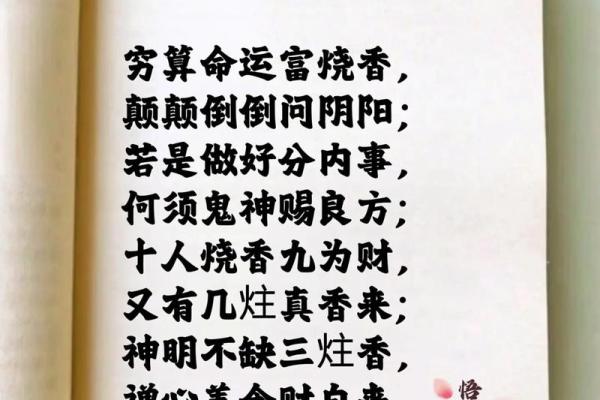 穷算命运富烧香,
颠颠倒倒问阴阳;
若是做好分内事,
何须鬼神赐良方;
十人烧香九为财,
又有几炷真香来;
神明不缺三炷香,
禅心善念财自来
悟